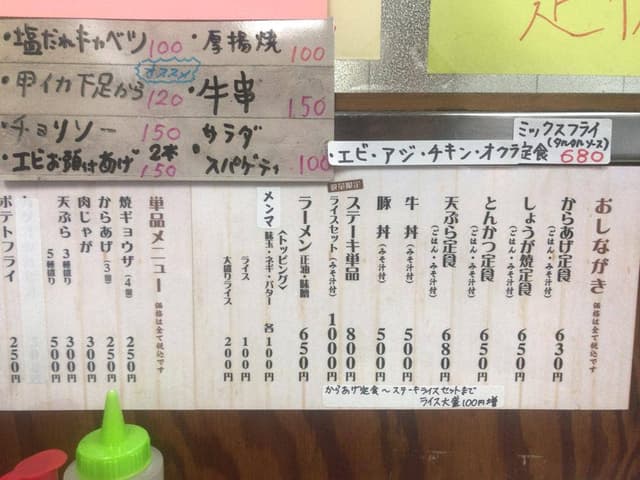 ・塩だれキャベツ 100
・厚揚焼 100
・甲イカ下足から 120
オススメ
・牛串 150
・チョリソー 150
・エビお頭はあげ 2本 150
・サラダスパゲティ 100
ミックスフライ
(タルタルソース)
・エビ・アジ・チキン・オクラ定食 680
おしながき 価格は全て税込です
からあげ定食(ごはん・みそ汁付) 630円
しょうが焼定食(ごはん・みそ汁付) 650円
とんかつ定食(ごはん・みそ汁付) 650円
天ぷら定食(ごはん・みそ汁付) 680円
牛丼(みそ汁付) 500円
豚丼(みそ汁付) 500円
ステーキ単品 800円
ライスセット(みそ汁付) 1000円
ラーメン 正油・味噌 650円
〈トッピング〉
メンマ 味玉・ネギ・バター 各100円
ライス 100円
大盛りライス 200円
からあげ定食〜ステーキライスセットまで
ライス大盛100円増
単品メニュー 価格は全て税込です
焼ギョウザ(4個) 250円
からあげ(3個) 250円
肉じゃが 300円
天ぷら 3種盛り 300円
5種盛り 500円
ポテトフライ 250円